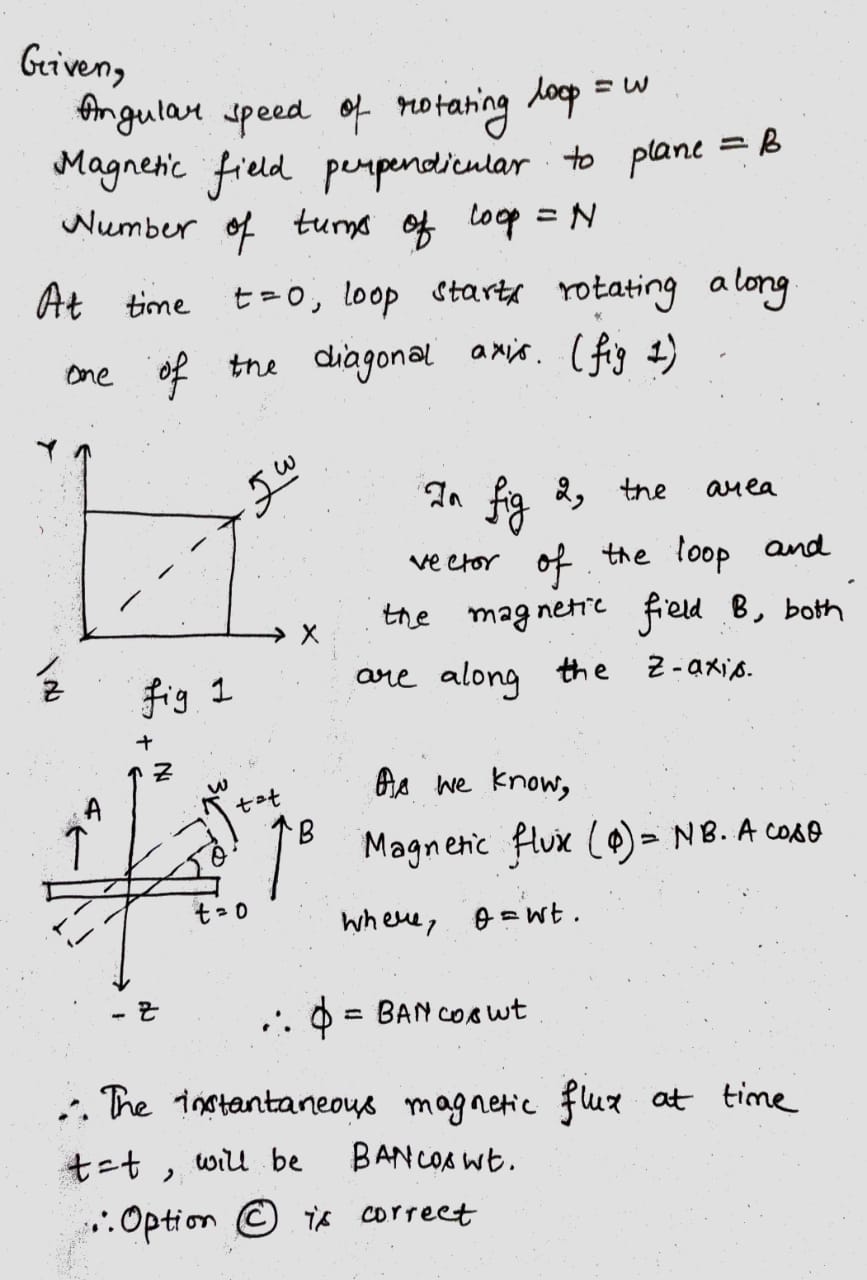 Given,
Angular speed of rotating loop = w
Magnetic field perpendicular to plane = B
Number of turns of loop = N
At time t=0, loop starts rotating along
one of the diagonal axis. (fig 1)
Y
w
X
Z
fig 1
In fig 2, the area
vector of the loop and
the magnetic field B, both
are along the Z-axis.
+
Z
A
w
t=t
B
θ
t=0
- Z
As we know,
Magnetic flux (ϕ) = NB. A cosθ
where, θ = wt.
∴ ϕ = BAN cos wt
∴ The instantaneous magnetic flux at time
t=t, will be BAN cos wt.
∴ Option Ⓒ is correct